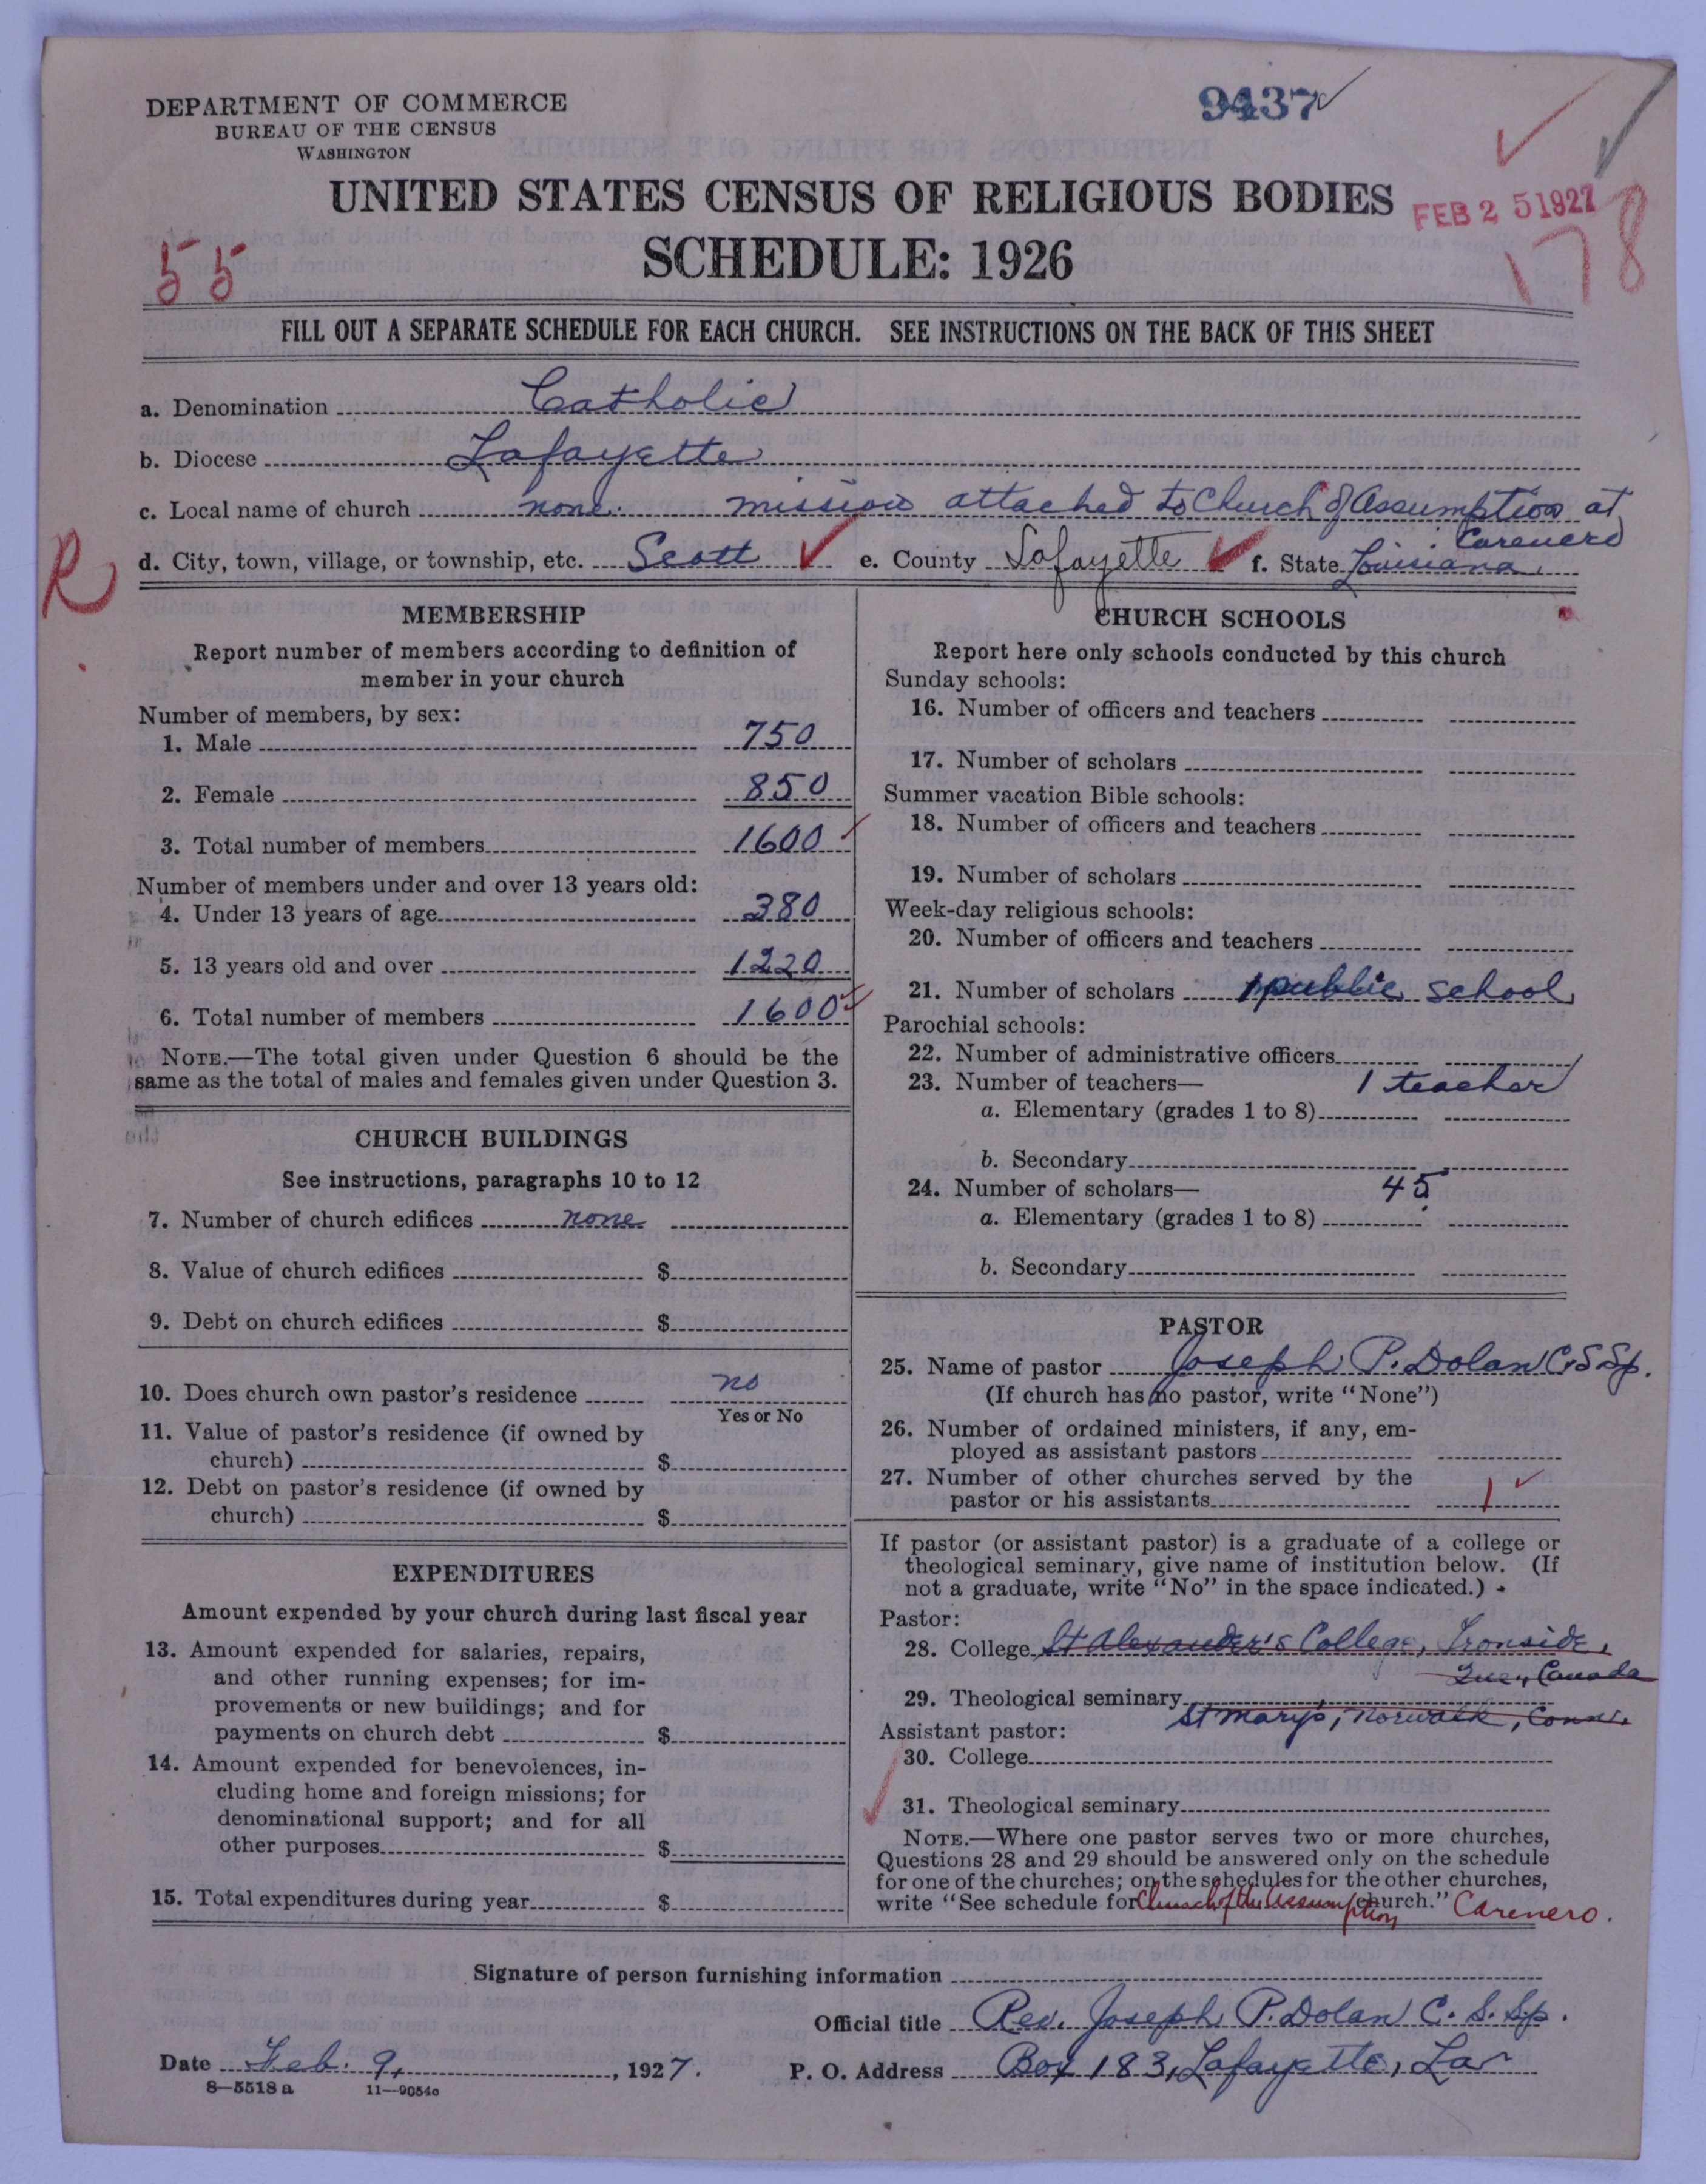 DEPARTMENT OF COMMERCE
BUREAU OF THE CENSUS
WASHINGTON
9437
UNITED STATES CENSUS OF RELIGIOUS BODIES
FEB 25 1927
SCHEDULE: 1926
55
178
FILL OUT A SEPARATE SCHEDULE FOR EACH CHURCH. SEE INSTRUCTIONS ON THE BACK OF THIS SHEET
a. Denomination Catholic
b. Diocese Lafayette
c. Local name of church none. mission attached to Church of Assumption at Carenero
R
d. City, town, village, or township, etc. Scott e. County Lafayette f. State Louisiana
MEMBERSHIP
Report number of members according to definition of
member in your church
Number of members, by sex:
1. Male 750
2. Female 850
3. Total number of members 1600
Number of members under and over 13 years old:
4. Under 13 years of age 380
5. 13 years old and over 1220
6. Total number of members 1600
NOTE.—The total given under Question 6 should be the
same as the total of males and females given under Question 3.
CHURCH BUILDINGS
See instructions, paragraphs 10 to 12
7. Number of church edifices none
8. Value of church edifices $
9. Debt on church edifices $
10. Does church own pastor's residence no
Yes or No
11. Value of pastor's residence (if owned by
church) $
12. Debt on pastor's residence (if owned by
church) $
EXPENDITURES
Amount expended by your church during last fiscal year
13. Amount expended for salaries, repairs,
and other running expenses; for im-
provements or new buildings; and for
payments on church debt $
14. Amount expended for benevolences, in-
cluding home and foreign missions; for
denominational support; and for all
other purposes $
15. Total expenditures during year $
CHURCH SCHOOLS
Report here only schools conducted by this church
Sunday schools:
16. Number of officers and teachers
17. Number of scholars
Summer vacation Bible schools:
18. Number of officers and teachers
19. Number of scholars
Week-day religious schools:
20. Number of officers and teachers
21. Number of scholars 1 public school
Parochial schools:
22. Number of administrative officers
23. Number of teachers— 1 teacher
a. Elementary (grades 1 to 8)
b. Secondary
24. Number of scholars— 45
a. Elementary (grades 1 to 8)
b. Secondary
PASTOR
25. Name of pastor Joseph P. Dolan C.S.Sp.
(If church has no pastor, write "None")
26. Number of ordained ministers, if any, em-
ployed as assistant pastors
27. Number of other churches served by the
pastor or his assistants 1
If pastor (or assistant pastor) is a graduate of a college or
theological seminary, give name of institution below. (If
not a graduate, write "No" in the space indicated.)
Pastor:
28. College St Alexander's College, Ironside,
Que, Canada
29. Theological seminary
St Mary's, Norwalk, Conn.
Assistant pastor:
30. College
31. Theological seminary
NOTE.—Where one pastor serves two or more churches,
Questions 28 and 29 should be answered only on the schedule
for one of the churches; on the schedules for the other churches,
write "See schedule for Church of the Assumption church." Carenero.
Signature of person furnishing information
Official title Rev. Joseph P. Dolan C.S.Sp.
Date Feb. 9, 1927. P. O. Address Box 183, Lafayette, La
8—5518 a 11—9054c